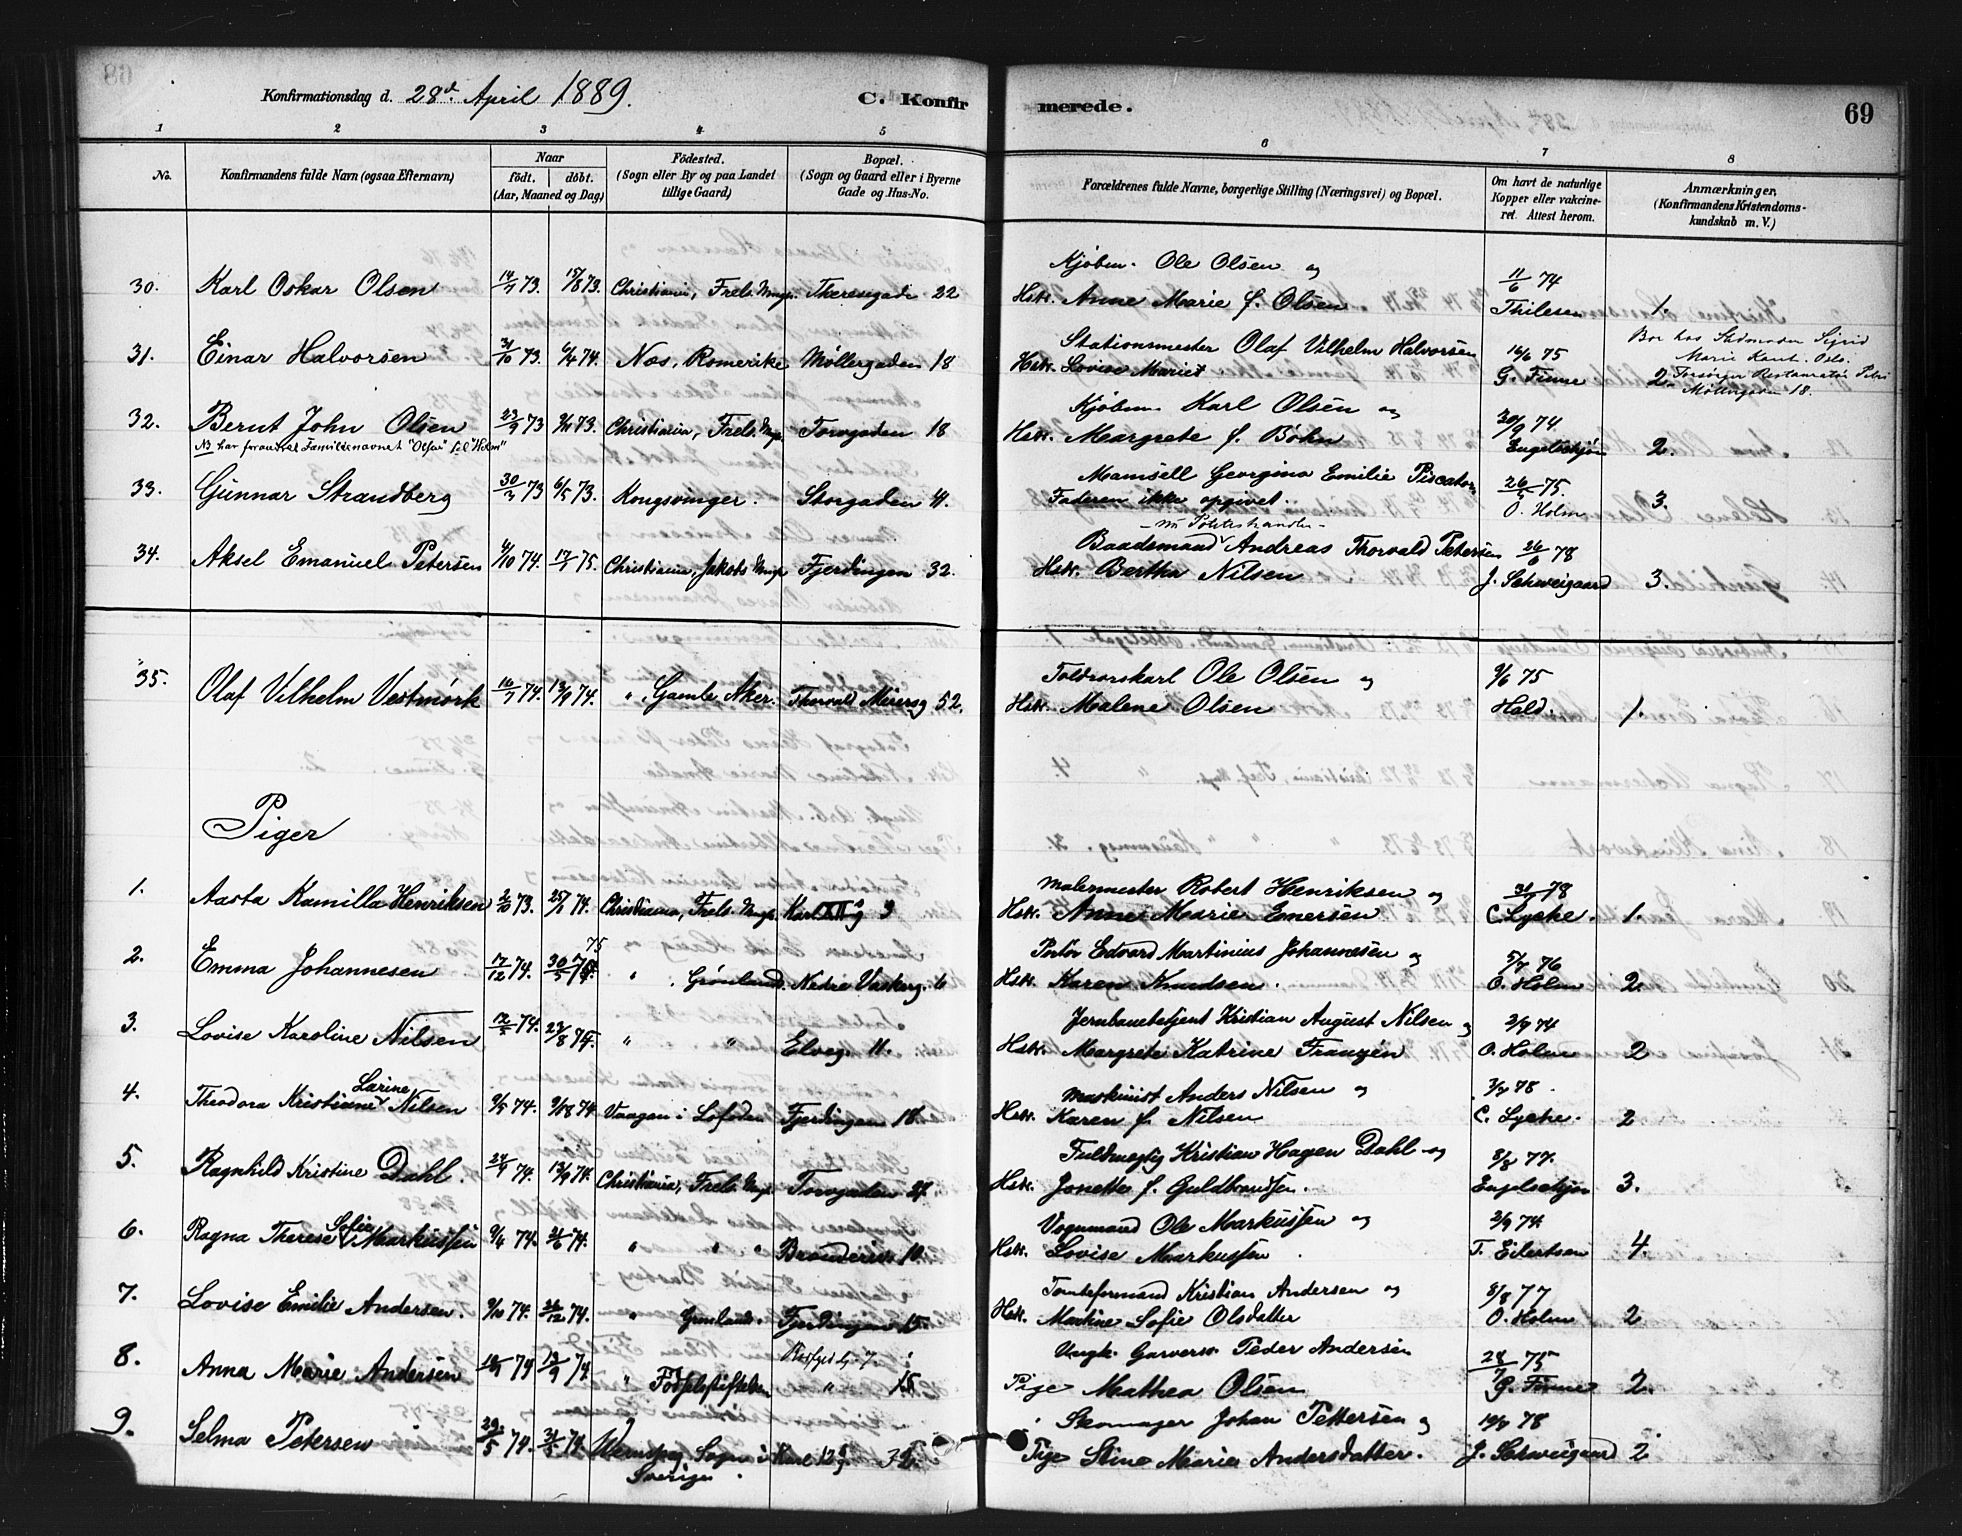 Konfirmationsdag d. 28d. April 1889. C. Konfirmerede. 69
1 2 3 4 5 6 7 8
No. Konfirmandens fulde Navn (ogsaa Efternavn) Naar födt. döbt. (Aar, Maaned og Dag) Födested. (Sogn eller By og paa Landet tillige Gaard) Bopæl. (Sogn og Gaard eller i Byerne Gade og Hus-No. Forældrenes fulde Navne, borgerlige Stilling (Næringsvei) og Bopæl. Om havt de naturlige Kopper eller vakcineret. Attest herom. Anmærkninger, (Konfirmandens Kristendomskundskab m. V.)
Kjøbm. Ole Olsen og 11/6 74
30. Karl Oskar Olsen 14/7 73. 15/8 73. Christiania, Frels. Mngh. Theresegade 22 Hstr. Anne Marie f. Olsen Thilesen 1.
Stationsmester Olaf Vilhelm Halvorsen 16/6 75 Bor hos Stedmoder Sigrid
31. Einar Halvorsen 31/10 73. 6/4 74. Næs, Romerike Møllergaden 18 Hstr. Lovise Mariet G. Finne 2. Marie Oslo.
Forsørger Restauratør
Møllergaden 18.
Kjøbm. Karl Olsen og 20/9 74
32. Bernt John Olsen 23/9 73 73. Christiania, Frels. Mngh. Torvgaden 18 Hstr. Margrete f. Bøhn Engelschjøn 2.
NB har forandret Familienavnet "Olsen" til "Holm"
Mamsell Georgina Emilie Piscator. 26/5 75.
33. Gunnar Strandberg 30/3 73 6/5 73. Kongsvinger. Storgaden 11. Faderen ikke opgivet. O. Holm 3.
Baadsmand Andreas Thorvald Petersen 26/6 78
34. Aksel Emanuel Petersen 4/10 74. 17/1 75. Christiania, Jakobs Mngh. Fjerdingen 32. Hstr. Bertha Nilsen J. Schweigaard 3.
Toldrorskarl Ole Olsen og 9/6 75
35. Olaf Vilhelm Vestmørk 16/7 74. 13/9 74. " Gamle Aker. Thorvald Meiersg 52. Hstr. Malene Olsen Hald. 1.
Piger
Malermester Robert Henriksen og 31/7 78
1. Aasta Kamilla Henriksen 2/10 73. 25/1 74. Christiania, Frels. Mngh. Karl XII g 9 Hstr. Anne Marie Emersen C. Lycke. 1.
Portør Edvard Martinius Johannesen og 5/7 76
2. Emma Johannesen 17/12 74. 30/5 75 " Grønlands. Nedre Vaskerg. 6 Hstr. Karen Knudsen. O. Holm 2.
Jernbanebetjent Kristian August Nilsen og 2/9 74
3. Lovise Karoline Nilsen 12/3 74. 23/8 74. " " Elveg. 11. Hstr. Margrete Katrine Franzén O. Holm 2
Maskinist Anders Nilsen og 3/7 78.
4. Theodora Kristiane Larine Nilsen 9/5 74. 9/08 74 Vaagan i Lofoden Fjerdingen 18. Hstr. Karen f. Nilsen C. Lycke. 2
Fuldmægtig Kristian Hagen Dahl og 8/8 77.
5. Ragnhild Kristine Dahl. 24/4 74. 13/9 74. Christiania, Frels. Mngh. Torvgaden 24. Hstr. Jonette f. Guldbrandsen. Engelschjøn 3.
Vognmand Ole Markussen og 2/9 74
6. Ragna Therese Sofie Markussen 9/4 74. 21/6 74. " " " Brænderiv. 10. Hstr. Lovise Markussen T. Eilertsen 4.
Tomteformand Kristian Andersen og 8/8 77
7. Lovise Emilie Andersen. 9/10 74. 26/12 74. " Grønlands. Fjerdingen 15. Hstr. Martine Sofie Olsdatter O. Holm 2
Ungk. Garversv. Peder Andersen 28/7 75
8. Anna Marie Andersen 74 13/9 74 " Fødselsstiftelsen " 15 Pige Mathea Olsen G. Finne 2.
Skomager Johan Pettersen og 19/7 78
9. Selma Petersen 29/5 74. 31/5 74. Sogn i Sverige. Karl 12 g Pige Stine Marie Andersdatter. J. Schweigaard 2